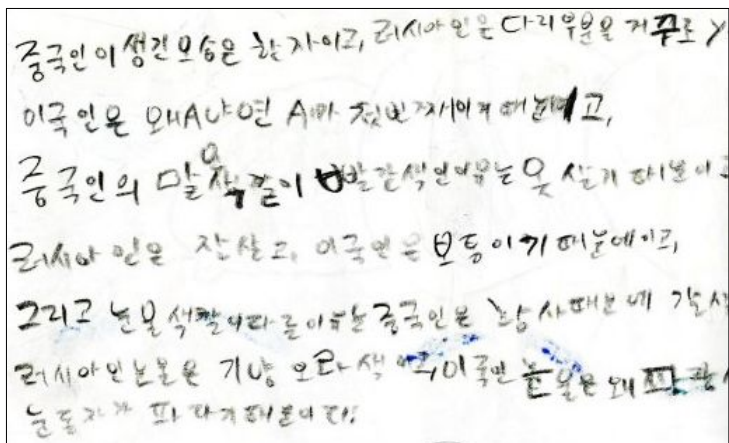 중국인이 생긴모습은 한자이고, 러시아인은 다리부분을 거꾸로 y
미국인은 왜A냐면 A가 첫번째이기 때문이고,
중국인의 말 색깔이 빨간색인이유는 옷 살기 때문이고
러시아인은 잘살고, 미국인은 보통이기때문에이고,
그리고 눈물색깔이다른이유는중국인은 황사때문에 갈색
러시아인눈물은 기냥 오라색이고,미국인눈물은 왜 파랑
눈동자가 파라기때문이다.